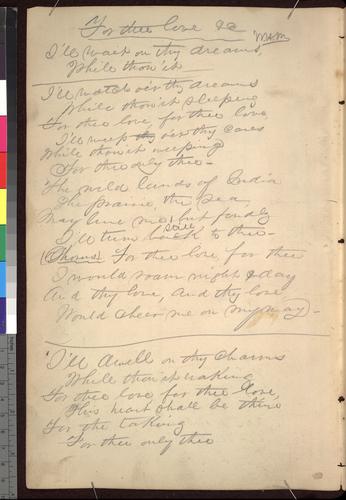 For thee love &c
MAM
I'll wait on thy dreams,
While thou'rt
I'll watch o'er thy dreams
While thou'rt sleeping
For thee love, for thee love,
I'll weep o'er thy cares
While thou'rt weeping
For thee only thee -
The wild lands of India
The prairie, the sea,
May lure me, but fondly
still
I'll turn back to thee -
(Chorus) For thee love, for thee
I would roam night & day
And thy love, and thy love
Would cheer me on my way -
I'll dwell on thy charms
While thou'rt waking
For thee love for thee love,
This heart shall be thine
For the taking
For thee only thee